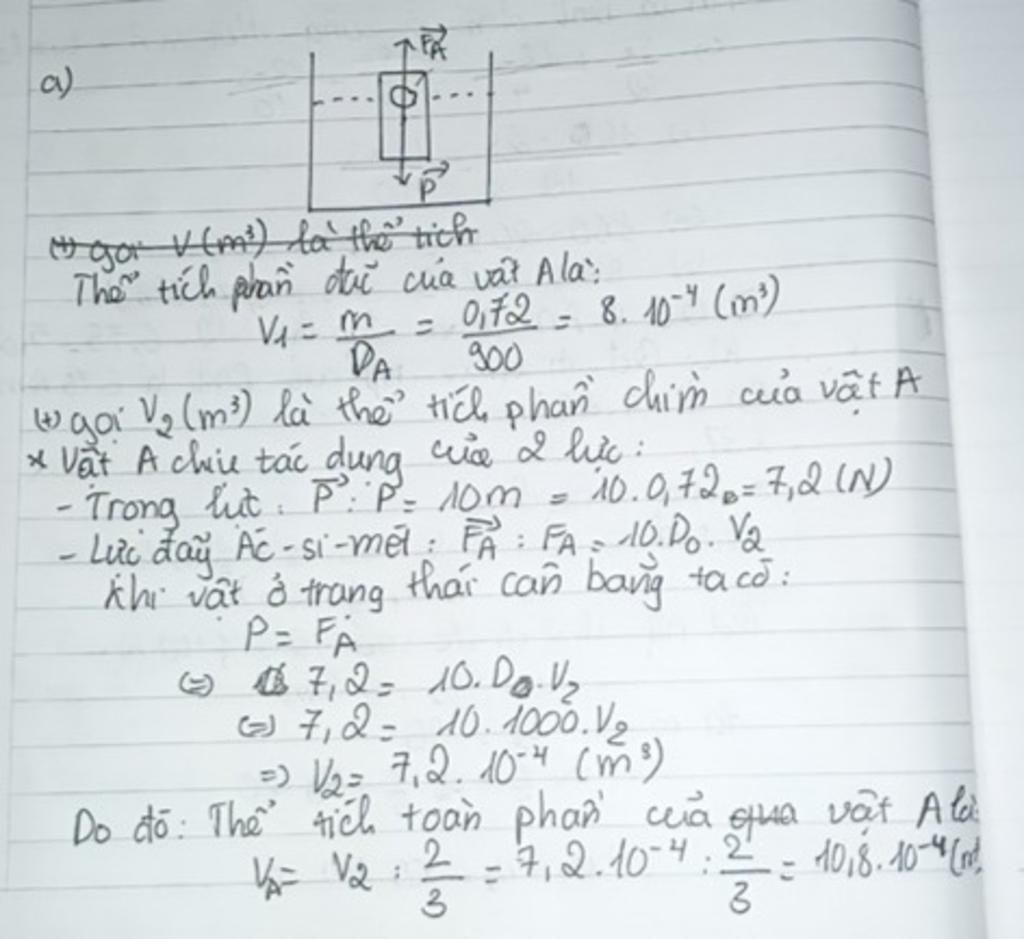 a)
F_A
P
(+) gọi V (m³) là thể tích
Thể tích phần đặc của vật A là:
V₁ = m/D_A = 0,72/900 = 8. 10⁻⁴ (m³)
(+) gọi V₂ (m³) là thể tích phần chìm của vật A
* Vật A chịu tác dụng của 2 lực:
- Trọng lực: P: P = 10m = 10.0,72 = 7,2 (N)
- Lực đẩy Ác-si-mét: F_A: F_A = 10.D₀.V₂
Khi vật ở trạng thái cân bằng ta có:
P = F_A
(=) 7,2 = 10.D₀.V₂
(=) 7,2 = 10.1000.V₂
=) V₂ = 7,2. 10⁻⁴ (m³)
Do đó: Thể tích toàn phần của qua vật A là
V_A = V₂ : 2/3 = 7,2.10⁻⁴ : 2/3 = 10,8.10⁻⁴ (m